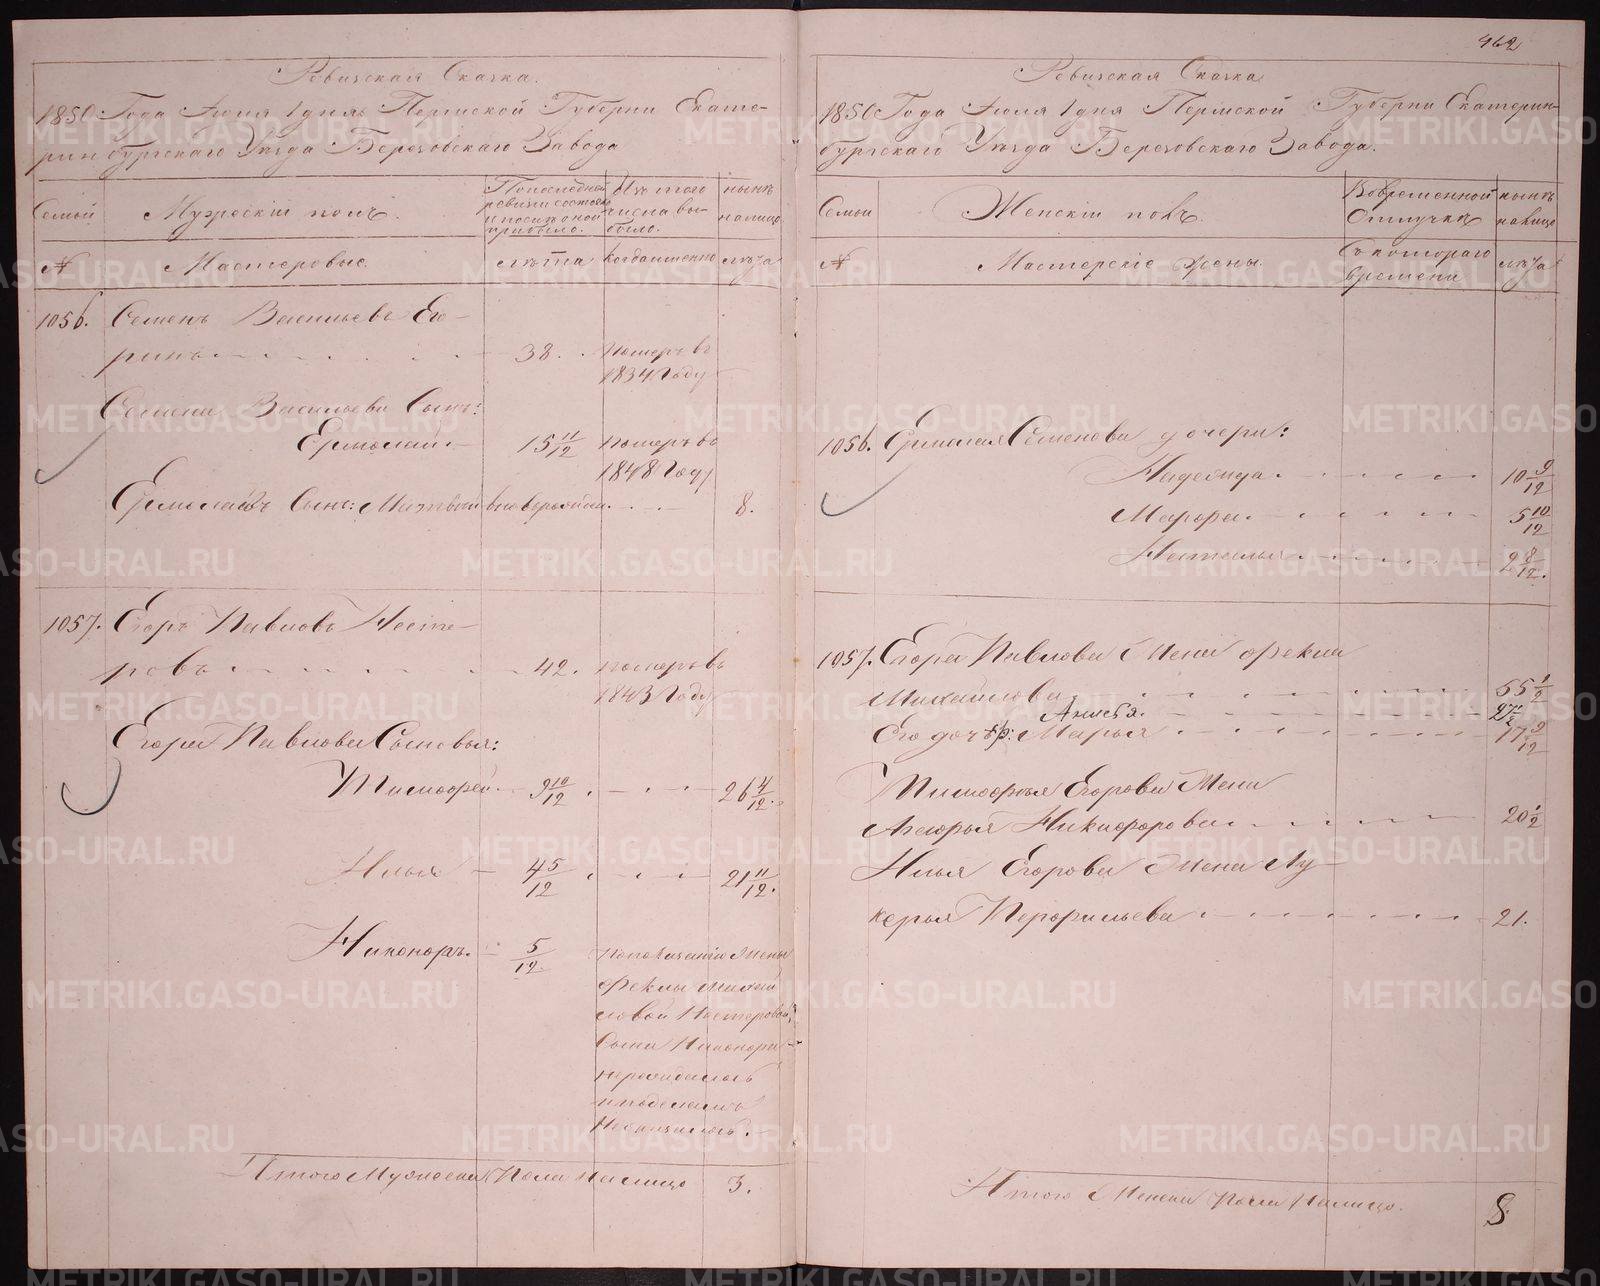 Ревизская Сказка.
1850 Года Июня 1 дня Пермской Губерни Екате-
ринбургскаго Уезда Березовскаго Завода
Семьи
Мужескій полъ.
По последней
ревизіи состояло
и после оной
прибыло.
Изъ того
числа вы-
было.
ныне
налицо
№
Мастеровые.
лета
когда именно
лета
1056. Семенъ Васильевъ Его-
ринъ 38. померъ въ
1834 Году
Семена Васильева Сынъ:
Ермолай 15 11/12 померъ въ
1848 Году
Ермолаевъ Сынъ: Матвей вновь рожден. 8.
1057. Егоръ Павловъ Несте-
ровъ 42. померъ въ
1843 Году
Егора Павлова Сыновья:
Тимофей 9 10/12 26 4/12.
Илья 4 5/12 21 11/12.
Никоноръ. 5/12.
по показанію жены
Феклы Михай
ловой Нестеровой,
сына Никонора
не рождалось
Итого Мужеска Пола налицо 3.
962
Ревизская Сказка
1850 Года Июля 1 дня Пермской Губерни Екатерин-
бургскаго Уезда Березовскаго Завода.
Семьи
Женскій полъ.
Во временной
Отлучке
ныне
налицо
№
Мастерскіе жены.
Съ котораго
времени
лета
1056. Ермолая Семенова дочери:
Надежда 10 9/12
Марфа 5 10/12
Наталья 2 8/12.
1057. Егора Павлова жена Фекла
Михайлова 55 1/2
Анисья.
Его дочь: Марья 17 9/12
Тимофея Егорова жена
Никифорова 20 1/2
Илья Егорова жена Лу-
керья Перфильева 21.
Итого Женска пола налицо. 8.
METRIKI.GASO-URAL.RU